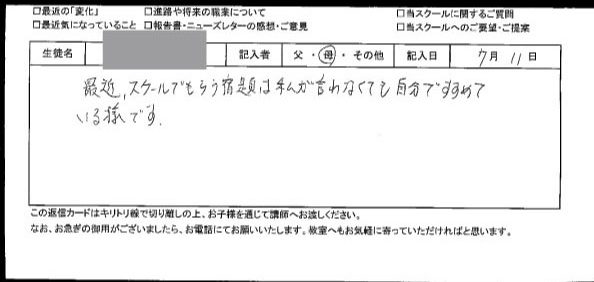 □最近の「変化」 □進路や将来の職業について □当スクールに関するご質問
□最近気になっていること □報告書・ニューズレターの感想・ご意見 □当スクールへのご要望・ご提案
生徒名 記入者 父・母・その他 記入日 7月11日
最近、スクールでもらう宿題は私が言わなくても自分ですすめて
いる様です。
この返信カードはキリトリ線で切り離しの上、お子様を通じて講師へお渡しください。
なお、お急ぎの御用がございましたら、お電話にてお願いいたします。教室へもお気軽に寄っていただければと思います。